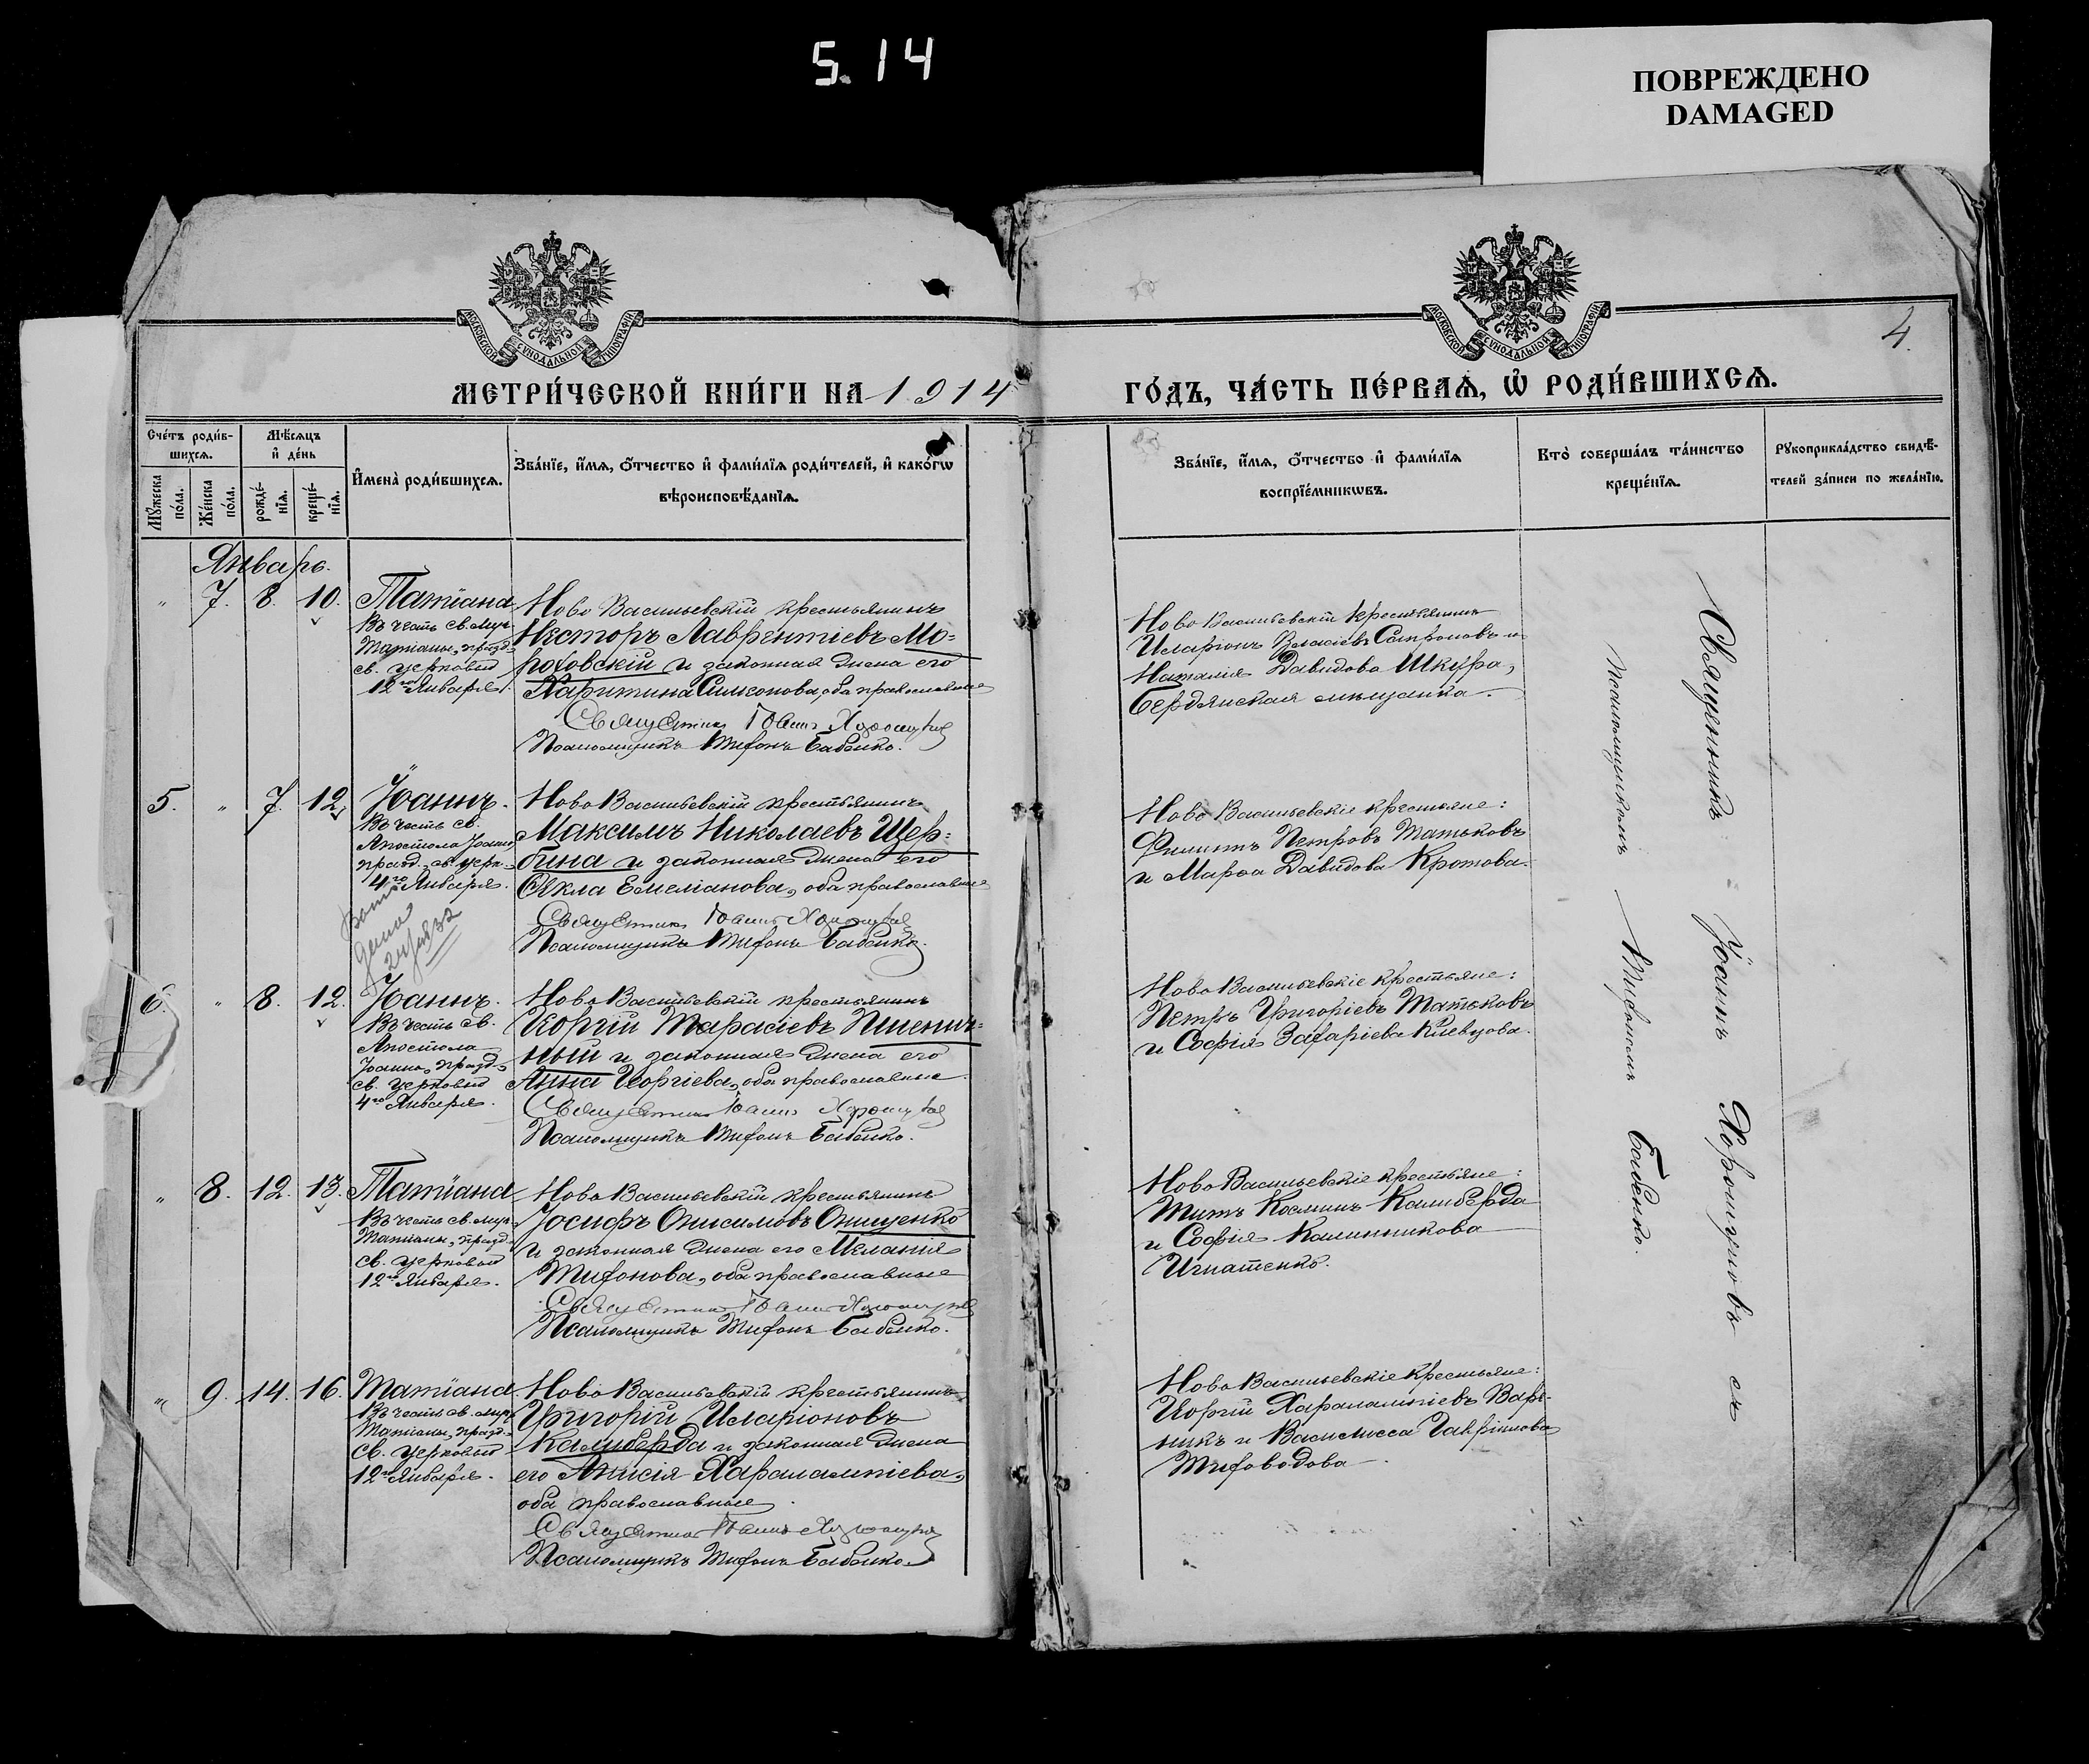 5.14
ПОВРЕЖДЕНО
DAMAGED
МОСКОВСКОЙ СѴНОДАЛЬНОЙ ТИПОГРАФІИ
МОСКОВСКОЙ СѴНОДАЛЬНОЙ ТИПОГРАФІИ
4.
МЕТРИ́ЧЕСКОЙ КНИ́ГИ НА 1914
ГО́ДЪ, ЧА́СТЬ ПЕ́РВАѦ, Ѽ РОДИ́ВШИХСѦ.
Сче́тъ роди́в-
шихсѧ.
Мѣ́сѧцъ
и҆ де́нь
Мꙋ́жеска
по́ла.
Же́нска
по́ла.
рожде́-
нїѧ.
креще́-
нїѧ.
И҆мена̀ роди́вшихсѧ.
Зва́нїе, и҆́мѧ, о҆́тчество и҆ фами́лїѧ роди́телей, и҆ како́гѡ
вѣроисповѣ́данїѧ.
Зва́нїе, и҆́мѧ, о҆́тчество и҆ фами́лїѧ
воспрїе́мникѡвъ.
Кто̀ соверша́лъ та́инство
креще́нїѧ.
Рꙋкоприкла́дство свидѣ́-
телей за́писи по жела́нїю.
Январь.
" 7. 8. 10.
Татіана
Въ честь св. муч.
Татіаны, празд.
св. церковью
12го Января.
Ново Васильевскій крестьянинъ
Несторъ Лаврентіевъ Мо=
роховскій и законная жена его
Харитина Симеонова, оба православные
Священникъ Іоаннъ
Псаломщикъ Тифонъ Бабенко.
Ново Васильевскій крестьянинъ
Иларіонъ Власіевъ Сафроновъ и
Наталія Давидова Шкура,
Бердянская мѣщанка.
5. " 7. 12.
Іоаннъ.
Въ честь св.
Апостола Іоанна,
празд. св. церк.
4го Января.
Ново Васильевскій крестьянинъ
Максимъ Николаевъ Щер=
бина и законная жена его
Ѳекла Емеліанова, оба православные
Священникъ Іоаннъ
Псаломщикъ Тифонъ Бабенко.
Ново Васильевскіе крестьяне:
Филиппъ Петровъ Татьковъ
и Марѳа Давидова Кротова.
6. " 8. 12.
Іоаннъ.
Въ честь св.
Апостола
Іоанна, празд.
св. церковью
4го Января.
Ново Васильевскій крестьянинъ
Георгій Тарасіевъ Пшенич=
ный и законная жена его
Анна Георгіева, оба православные
Священникъ Іоаннъ
Псаломщикъ Тифонъ Бабенко.
Ново Васильевскіе крестьяне:
Петръ Григоріевъ Татьковъ
и Софія Захаріева Кіевцова.
" 8. 12. 13.
Татіана
Въ честь св. муч.
Татіаны, празд.
св. церковью
12го Января.
Ново Васильевскій крестьянинъ
Іосифъ Онисимовъ Онищенко
и законная жена его Меланія
Тифонова, оба православные
Священникъ Іоаннъ
Псаломщикъ Тифонъ Бабенко.
Ново Васильевскіе крестьяне:
Титъ Косминъ Калиберда
и Софія Калинникова
Игнатенко.
" 9. 14. 16.
Татіана
Въ честь св. муч.
Татіаны, празд.
св. церковью
12го Января.
Ново Васильевскій крестьянинъ
Григорій Иларіоновъ
Калиберда и законная жена
его Анисія Харалампіева,
оба православные
Священникъ Іоаннъ
Псаломщикъ Тифонъ Бабенко.
Ново Васильевскіе крестьяне:
Георгій Харалампіевъ Вар-
никъ и Василисса Гавріилова
Тифоводова
Священникъ Іоаннъ Хорошуновъ съ
псаломщикомъ Тифономъ Бабенко.